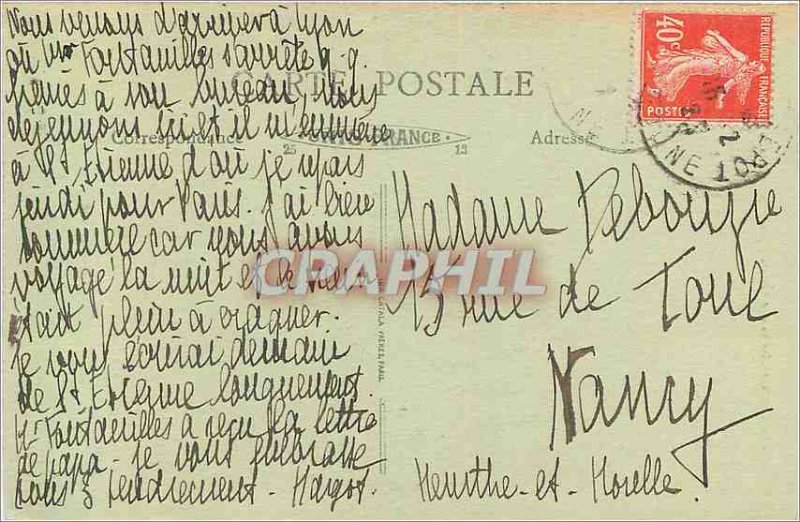 Nous venons d'arriver à Lyon
où Mr Fontanilles s'arrête q.q.
à son bureau, nous
déjeunons ici et il m'emmène
à St Etienne d'où je repars
jeudi pour Paris. J'ai bien
sommeil car nous avons
voyagé la nuit et le train
était plein à craquer.
Je vous écrirai demain
de St Etienne longuement.
Mr Fontanilles a reçu la lettre
de papa. Je vous embrasse
tous 3 tendrement - Margot.
CARTE POSTALE
Correspondance
FRANCE
Adresse
25
13
REPUBLIQUE FRANÇAISE
40c
POSTES
Madame Debougie
15 rue de Toul
Nancy
Meurthe-et-Moselle.
CPARPHIL